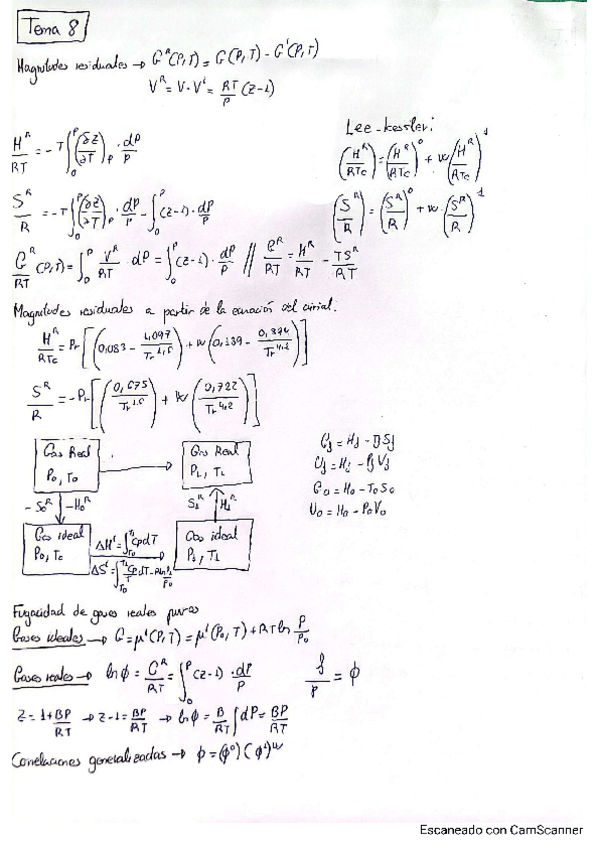 Tema 8
Magnitudes residuales → G^R(P,T) = G(P,T) - G^i(P,T)
V^R = V - V^i = RT/P (z-1)
H^R/RT = -T ∫_0^P (∂z/∂T)_P · dP/P
Lee-kessler:
(H^R/RTc) = (H^R/RTc)^0 + w (H^R/RTc)^1
S^R/R = -T ∫_0^P (∂z/∂T)_P · dP/P - ∫_0^P (z-1) · dP/P
(S^R/R) = (S^R/R)^0 + w (S^R/R)^1
G^R/RT (P,T) = ∫_0^P V^R/RT dP = ∫_0^P (z-1) · dP/P // G^R/RT = H^R/RT - TS^R/RT
Magnitudes residuales a partir de la ecuación del virial.
H^R/RTc = Pr [(0,083 - 1,097/Tr^1,6) + w (0,139 - 0,894/Tr^4,2)]
S^R/R = -Pr [(0,675/Tr^2,6) + w (0,722/Tr^5,2)]
Gas Real
P0, T0
Gas Real
P1, T1
G1 = H1 - T1S1
U1 = H1 - P1V1
G0 = H0 - T0S0
U0 = H0 - P0V0
-S0^R
-H0^R
S1^R
H1^R
Gas ideal
P0, To
ΔH^i = ∫_T0^T1 Cp dT
ΔS^i = ∫_T0^T1 Cp/T dT - R ln P1/P0
Gas ideal
P1, T1
Fugacidad de gases reales puros
Gases ideales → G = μ^i(P,T) = μ^i(P0,T) + RT ln P/P0
Gases reales → ln φ = G^R/RT = ∫_0^P (z-1) · dP/P
f/P = φ
z = 1 + BP/RT → z-1 = BP/RT → ln φ = B/RT ∫ dP = BP/RT
Correlaciones generalizadas → φ = (φ^0)(φ^1)^w
Escaneado con CamScanner